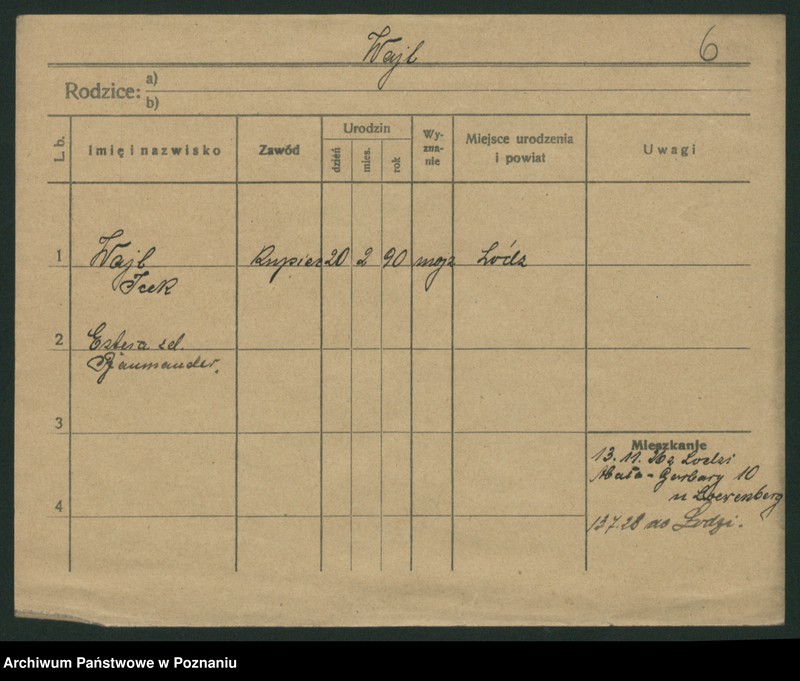 Wajl 6
Rodzice: a)
b)
L. b. Imię i nazwisko Zawód Urodzin dzień mies. rok Wyzna-nie Miejsce urodzenia i powiat Uwagi
1 Wajl kupiec 20 2 90 mojż Łódz
Icek
2 Estera zd.
3
Mieszkanie
13.11. z Łodzi
Mała-Garbary 10
u Loevenberg
4 13 7.28 do Łodzi.
Archiwum Państwowe w Poznaniu